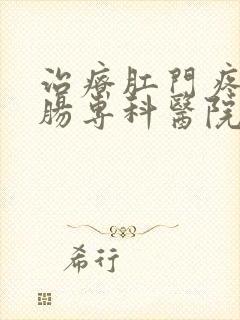 治療肛門
腸專科醫院
希行